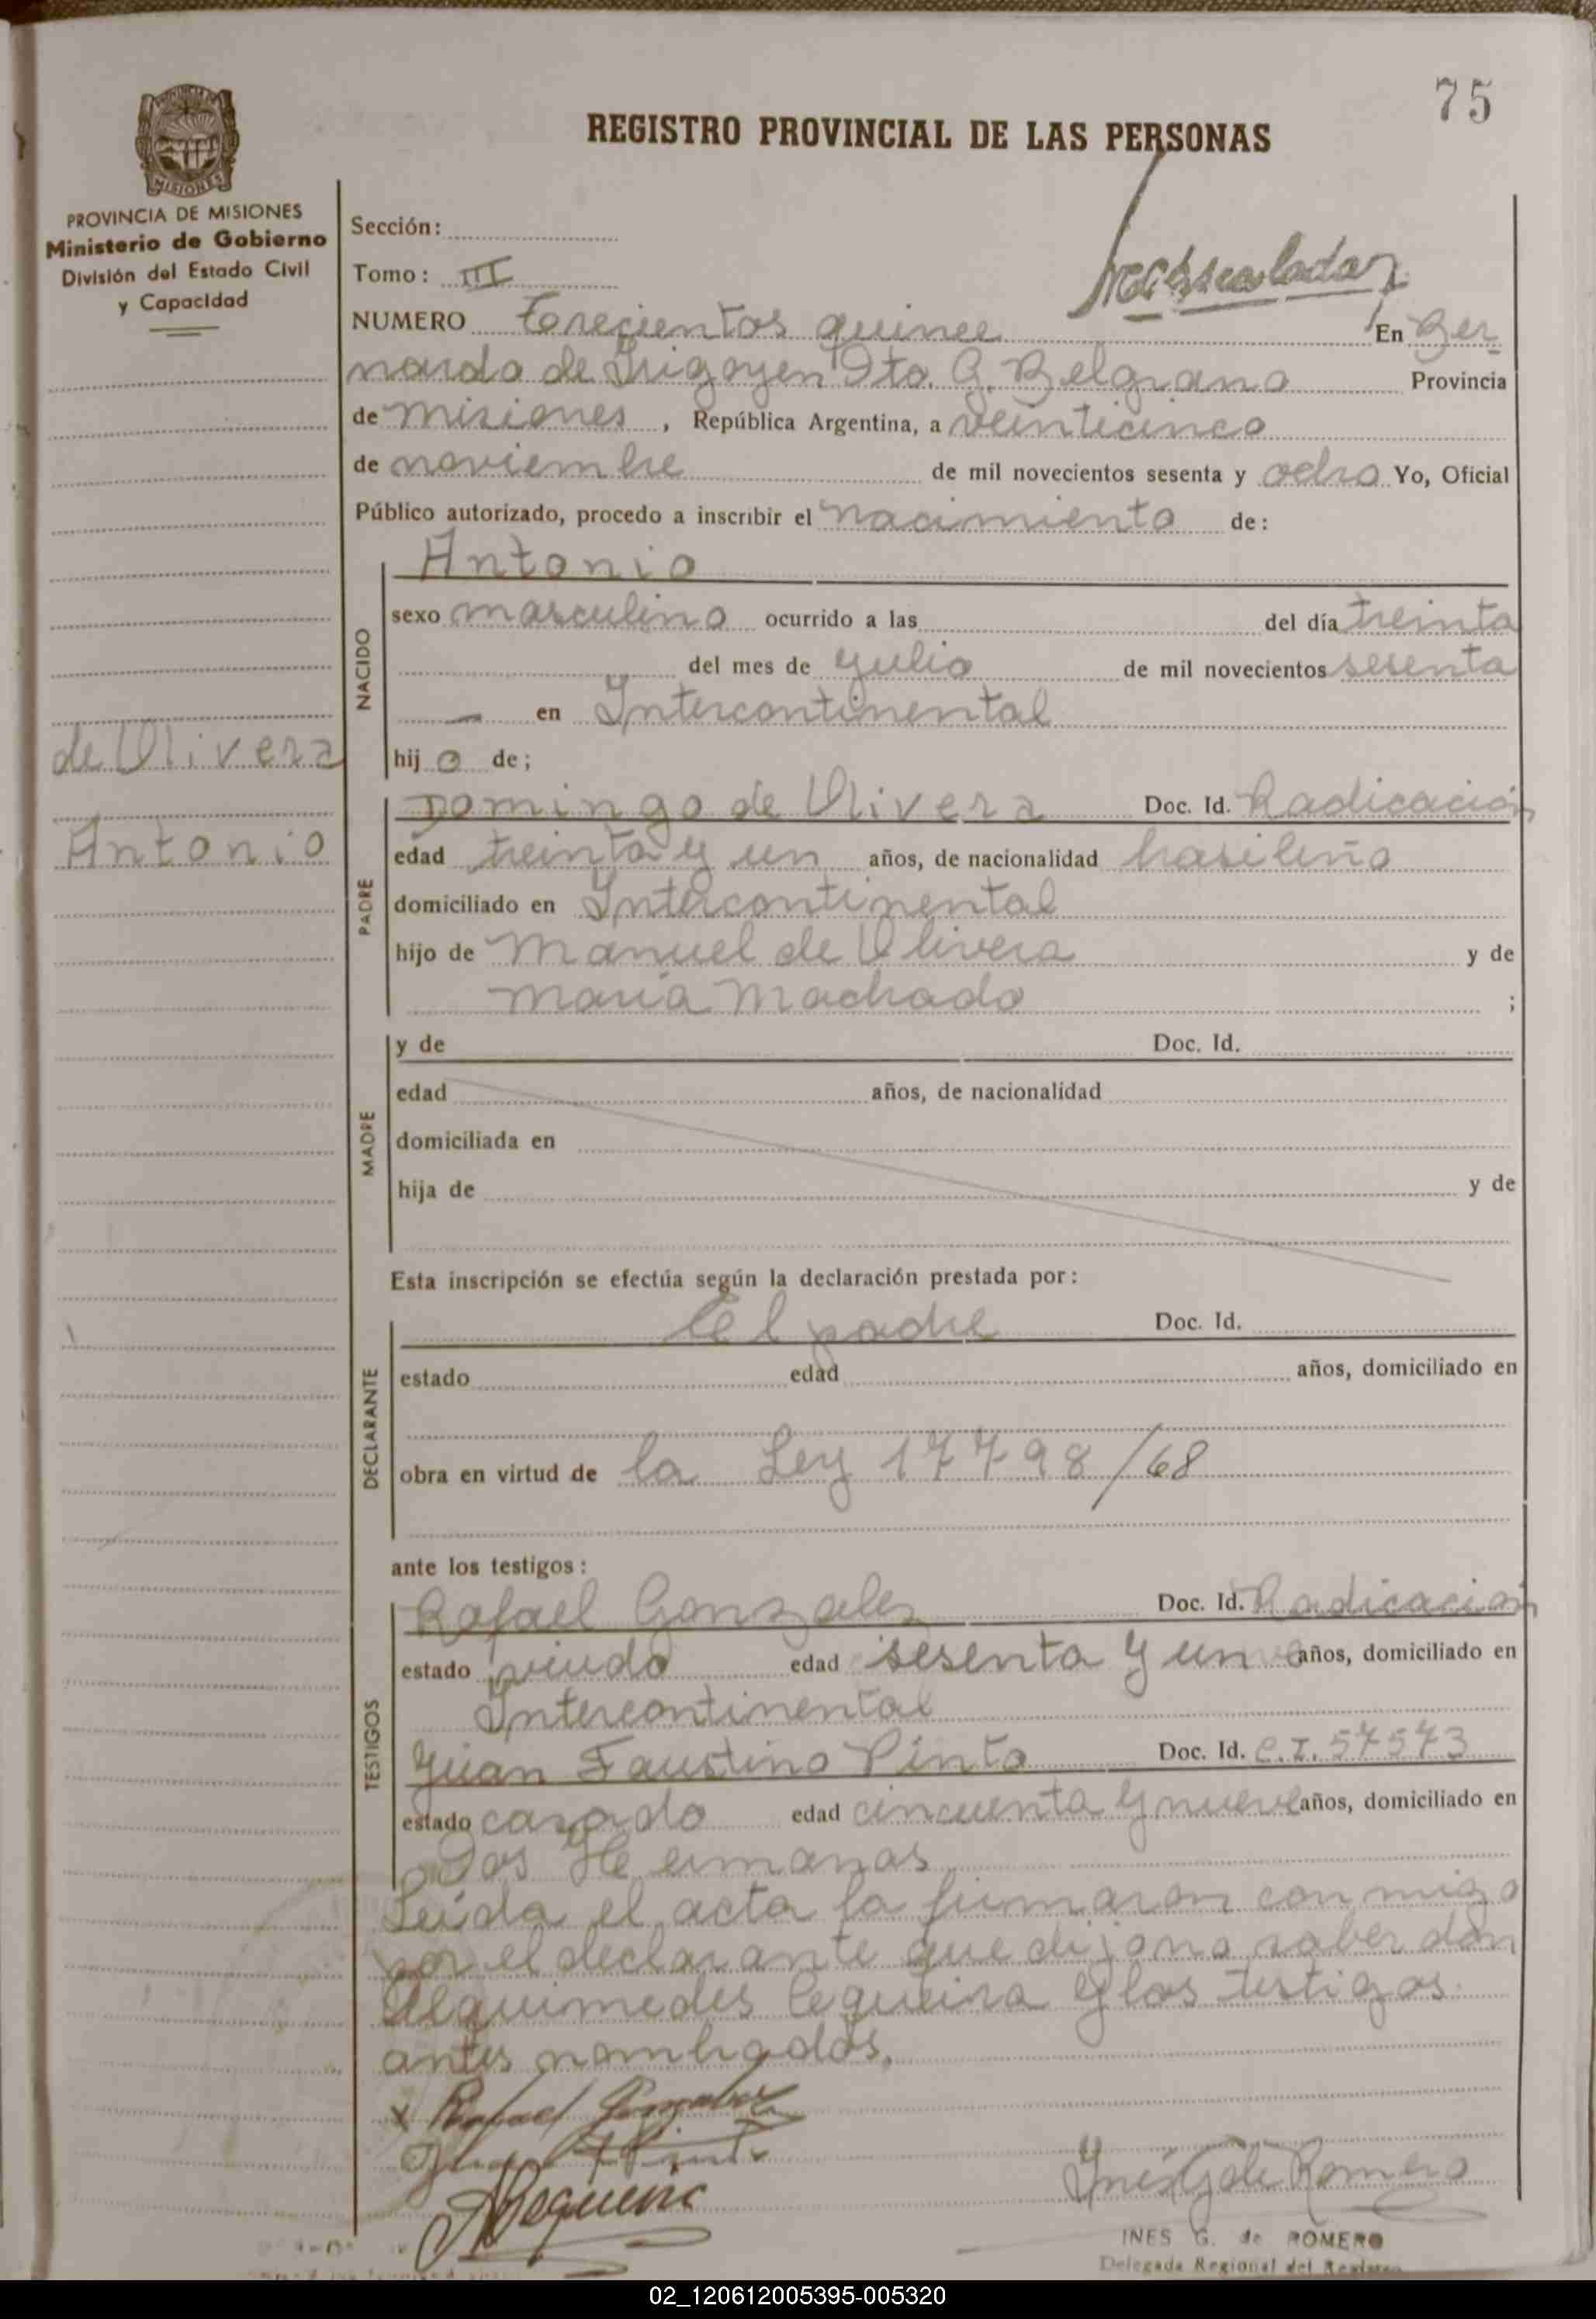 75
REGISTRO PROVINCIAL DE LAS PERSONAS
PROVINCIA DE MISIONES
Ministerio de Gobierno
División del Estado Civil
y Capacidad
Sección:
Tomo: III
NUMERO Trecientos quince En Ber-
nardo de Irigoyen Dto. G. Belgrano Provincia
de Misiones, República Argentina, a veinticinco
de noviembre de mil novecientos sesenta y ocho Yo, Oficial
Público autorizado, procedo a inscribir el nacimiento de:
NACIDO
Antonio
sexo masculino ocurrido a las del día treinta
del mes de julio de mil novecientos sesenta
— en Intercontinental
hijo de;
de Olivera
Antonio
PADRE
Domingo de Olivera Doc. Id. Radicación
edad treinta y un años, de nacionalidad brasileño
domiciliado en Intercontinental
hijo de Manuel de Olivera y de
María Machado ;
MADRE
y de Doc. Id.
edad años, de nacionalidad
domiciliada en
hija de y de
Esta inscripción se efectúa según la declaración prestada por:
DECLARANTE
el padre Doc. Id.
estado edad años, domiciliado en
obra en virtud de la Ley 17798/68
ante los testigos:
TESTIGOS
Rafael Gonzalez Doc. Id. Radicación
estado viudo edad sesenta y un años, domiciliado en
Intercontinental
Juan Faustino Pinto Doc. Id. C.I. 57573
estado casado edad cincuenta y nueve años, domiciliado en
Dos Hermanas
Leída el acta la firmaron con migo
por el declarante que dijo no saber don
Alquimedes Cequeira y los testigos
antes nombrados.
x Rafael Gonzalez
INES G. de ROMERO
Delegada Regional del Registro
02_120612005395-005320